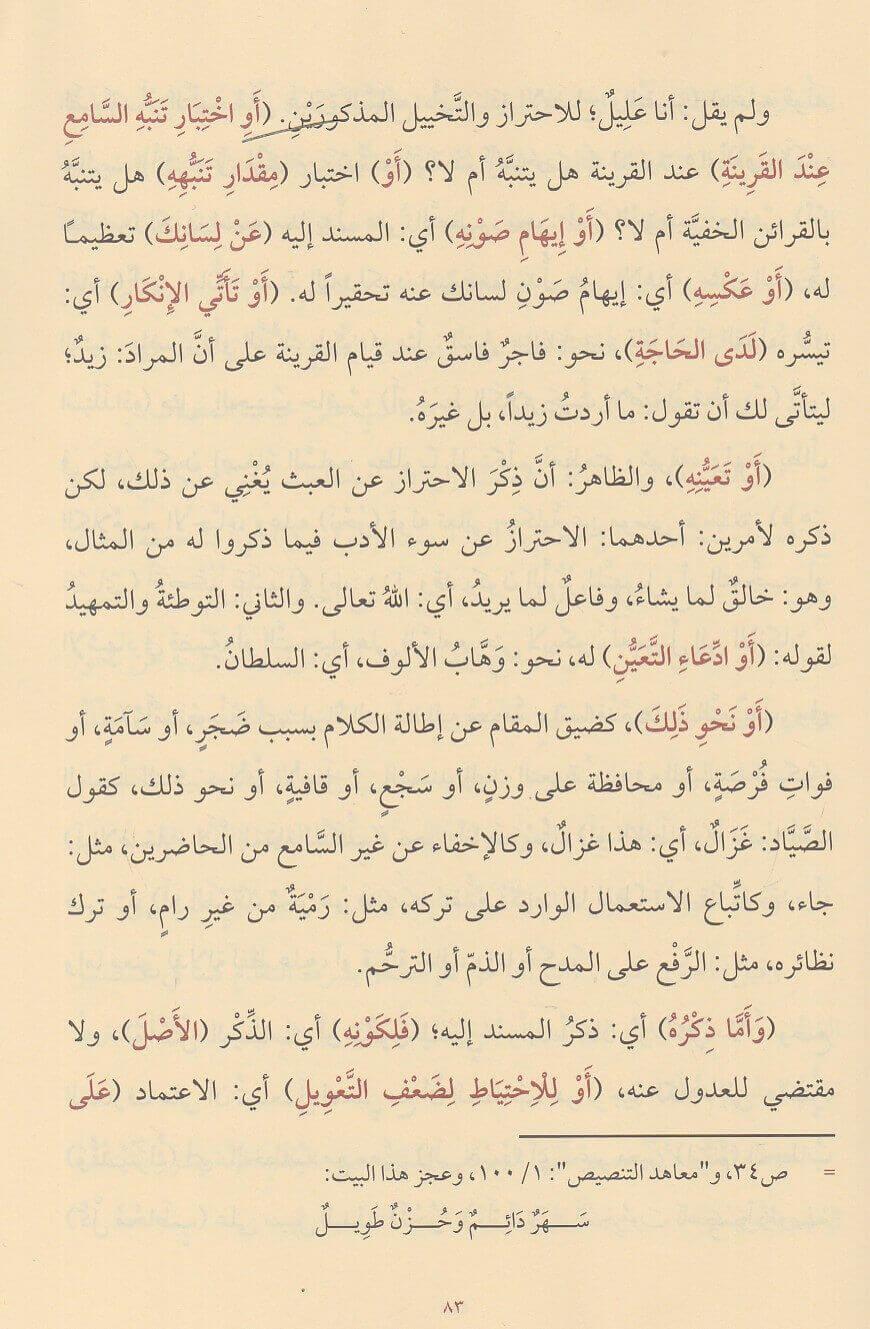 ولم يقل: أنا عَلِيلٌ؛ للاحتراز والتَّخييل المذكورَيْنِ. (أَوِ اخْتِبَارِ تَنَبُّهِ السَّامِعِ
عِنْدَ القَرِينَةِ) عند القرينة هل يتنبَّهُ أم لا؟ (أَوْ) اختبار (مِقْدَارِ تَنَبُّهِهِ) هل يتنبَّهُ
بالقرائن الخفيَّة أم لا؟ (أَوْ إِيهَامِ صَوْنِهِ) أي: المسند إليه (عَنْ لِسَانِكَ) تعظيمـًا
له، (أَوْ عَكْسِهِ) أي: إيهامُ صَوْنِ لسانك عنه تحقيراً له. (أَوْ تَأَتِّي الإِنْكَارِ) أي:
تيسُّره (لَدَى الحَاجَةِ)، نحو: فاجرٌ فاسقٌ عند قيام القرينة على أنَّ المرادَ: زيدٌ؛
ليتأتَّى لك أن تقول: ما أردتُ زيداً، بل غيرَهُ.
(أَوْ تَعَيُّنِهِ)، والظاهرُ: أنَّ ذِكْرَ الاحتراز عن العبث يُغْنِي عن ذلك، لكن
ذكره لأمرين: أحدهما: الاحترازُ عن سوء الأدب فيما ذكروا له من المثال،
وهو: خالقٌ لما يشاءُ، وفاعلٌ لما يريدُ، أي: اللهُ تعالى. والثاني: التوطئةُ والتمهيدُ
لقوله: (أَوْ ادِّعَاءِ التَّعَيُّنِ) له، نحو: وَهَّابُ الألوف، أي: السلطانُ.
(أَوْ نَحْوِ ذَلِكَ)، كضيق المقام عن إطالة الكلام بسبب ضَجَرٍ، أو سَآمَةٍ، أو
فواتِ فُرْصَةٍ، أو محافظة على وزنٍ، أو سَجْعٍ، أو قافيةٍ، أو نحو ذلك، كقول
الصَّيَّاد: غَزَالٌ، أي: هذا غزالٌ، وكالإخفاء عن غير السَّامع من الحاضرين، مثل:
جاء، وكاتِّباع الاستعمال الوارد على تركه، مثل: رَمْيَةٌ من غيرِ رامٍ، أو ترك
نظائره، مثل: الرَّفْع على المدح أو الذمّ أو الترحُّم.
(وَأَمَّا ذِكْرُهُ) أي: ذكرُ المسند إليه؛ (فَلِكَوْنِهِ) أي: الذِّكْر (الأَصْلَ)، ولا
مقتضي للعدول عنه، (أَوْ لِلْاحْتِيَاطِ لِضَعْفِ التَّعْوِيلِ) أي: الاعتماد (عَلَى
= ص٣٤، و"معاهد التنصيص": ١/ ١٠٠، وعجز هذا البيت:
سَـــهَرٌ دَائِـــمٌ وَحُـــزْنٌ طَوِيـــلٌ
٨٣